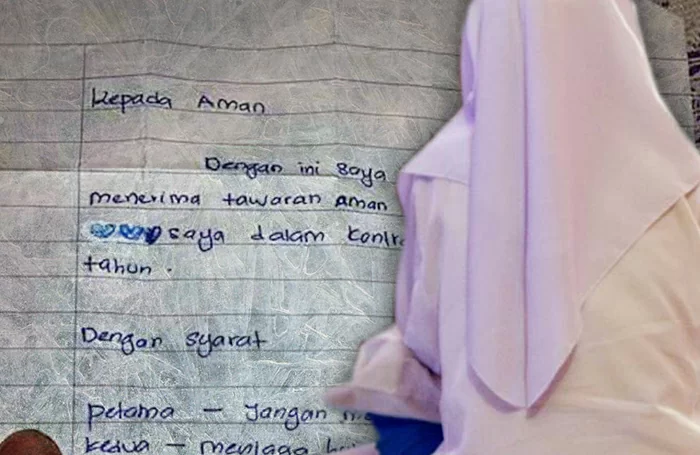 Kepada Aman
Dengan ini saya
menerima tawaran Aman
saya dalam
tahun.
Dengan syarat
petama - Jangan
kedua - menjaga